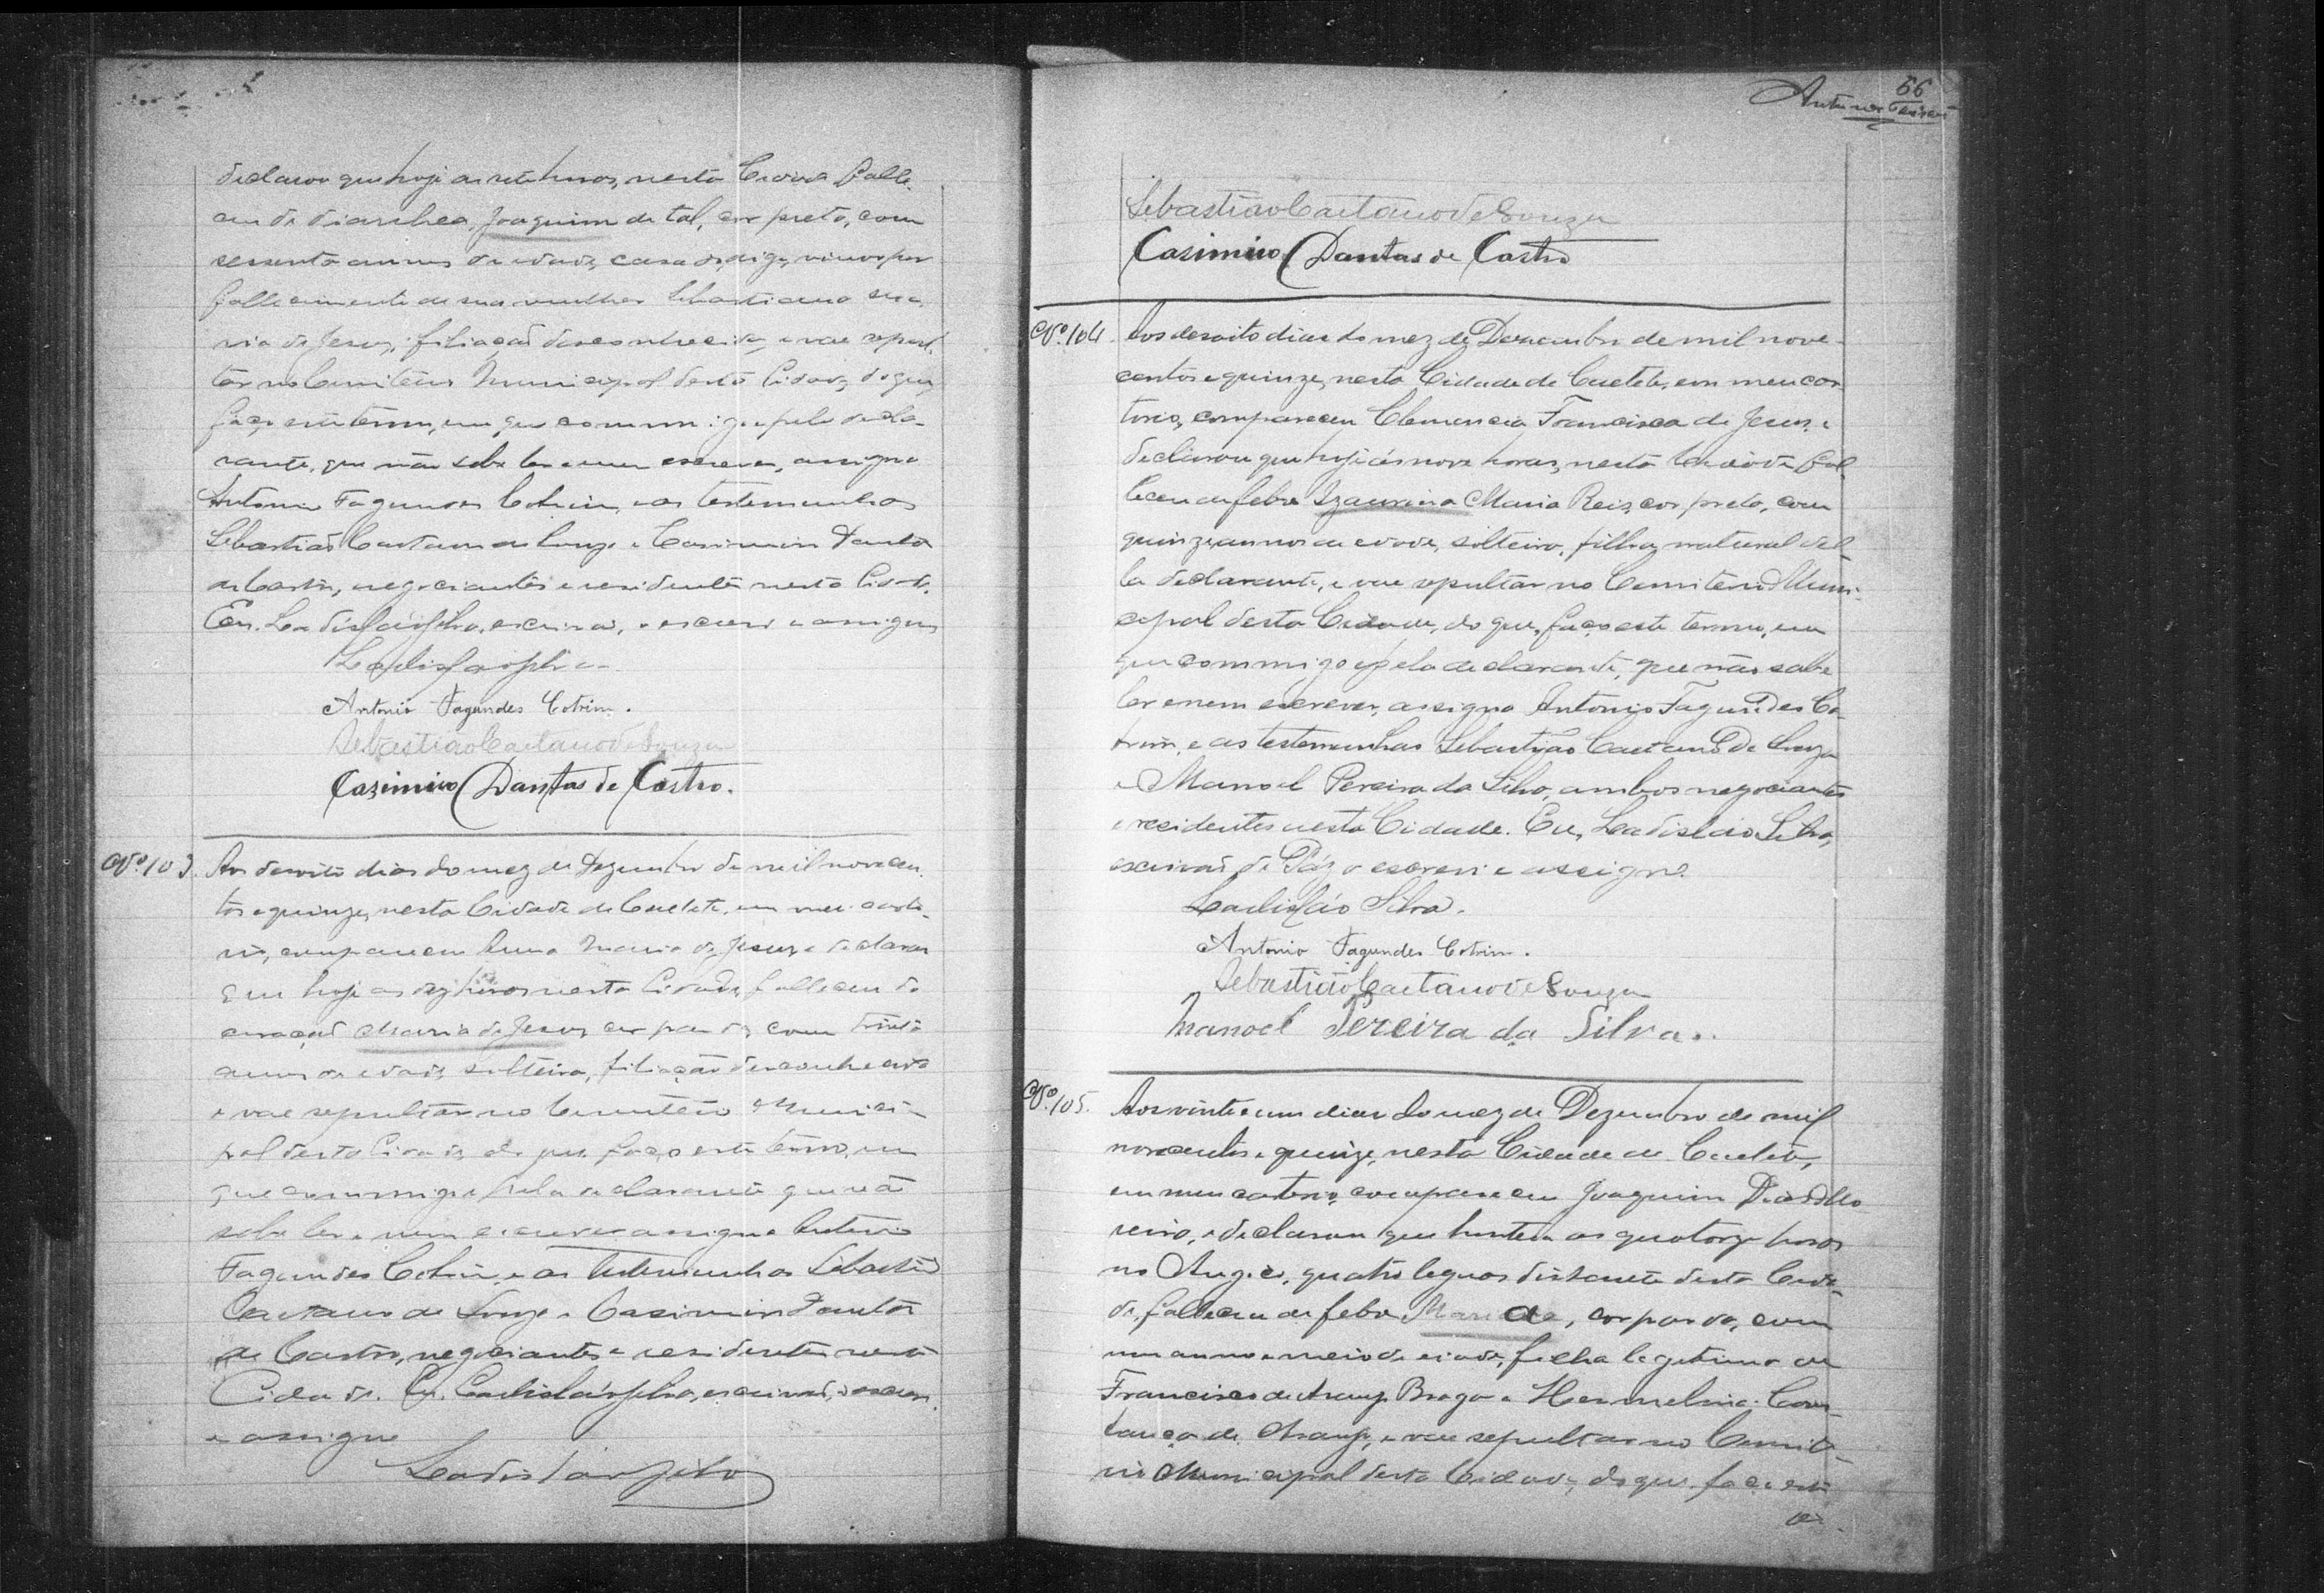 declarou que hoje as sete horas, nesta Cidade falle-
ceu de diarrhea, Joaquim de tal, cor preta, com
sessenta annos de edade, casado, digo, viuvo por
fallecimento de sua mulher Sebastiana
de Jesus, filiação desconhecida, e vae sepul-
tar no Cemiterio Municipal desta Cidade, do que,
faço este termo, em que commigo e pelo decla-
rante, que não sabe ler e nem escrever, assigna
Antonio Fagundes Cotrim, e as testemunhas
Sebastião Caetano de Souza e Casimiro Dantas
de Castro, negociantes e residentes nesta Cidade.
Eu, Ladisláo Silva, escrivão, o escrevi e assigno
Ladisláo Silva
Antonio Fagundes Cotrim.
Sebastião Caetano de Souza
Casimiro Dantas de Castro.
Nº. 103. Aos desoito dias do mez de Dezembro de mil novecen-
tos e quinze, nesta Cidade de Caeteté, em meu carto-
rio, compareceu Anna Maria de Jesus e declarou
que hoje as dez horas nesta Cidade, falleceu do
coração Maria de Jesus, cor parda, com trinta
annos de edade, solteira, filiação desconhecida
e vae sepultar no Cemiterio Munici-
pal desta Cidade, do que, faço este termo, em
que commigo e pela declarante que não
sabe ler e nem escrever assigna Antonio
Fagundes Cotrim, e as testemunhas Sebastião
Caetano de Souza e Casimiro Dantas
de Castro, negociantes e residentes nesta
Cidade. Eu, Ladisláo Silva, escrivão, o escrevi
e assigno
Ladisláo Silva
66
Antunes
Sebastião Caetano de Souza
Casimiro Dantas de Castro
Nº. 104. Aos desoito dias do mez de Dezembro de mil nove-
centos e quinze, nesta Cidade de Caeteté, em meu car-
torio, compareceu Clemencia Francisca de Jesus, e
declarou que hoje ás nove horas, nesta Cidade fal-
leceu de febre Izaurina Maria Reis, cor preta, com
quinze annos de edade, solteira, filha natural del-
la declarante, e vae sepultar no Cemiterio Muni-
cipal desta Cidade, do que, faço este termo, em
que commigo e pela declarante, que não sabe
ler e nem escrever, assigna Antonio Fagundes Co-
trim, e as testemunhas Sebastião Caetano de Souza
e Manoel Pereira da Silva, ambos negociantes
e residentes nesta Cidade. Eu, Ladisláo Silva,
escrivão de Páz o escrevi e assigno.
Ladisláo Silva.
Antonio Fagundes Cotrim.
Sebastião Caetano de Souza
Manoel Pereira da Silva.
Nº. 105. Aos vinte e um dias do mez de Dezembro de mil
novecentos e quinze, nesta Cidade de Caeteté,
em meu cartorio, compareceu Joaquim Dias
e declarou que hontem as quatorze horas
no Angico, quatro leguas distante desta Cida-
de, falleceu de febre Maria, cor parda, com
um anno e meio de edade, filha legitima de
Francisco de Araujo Braga e Hermelina Cons-
tança de Araujo, e vae sepultar no Cemite-
rio Municipal desta Cidade, do que, faço este